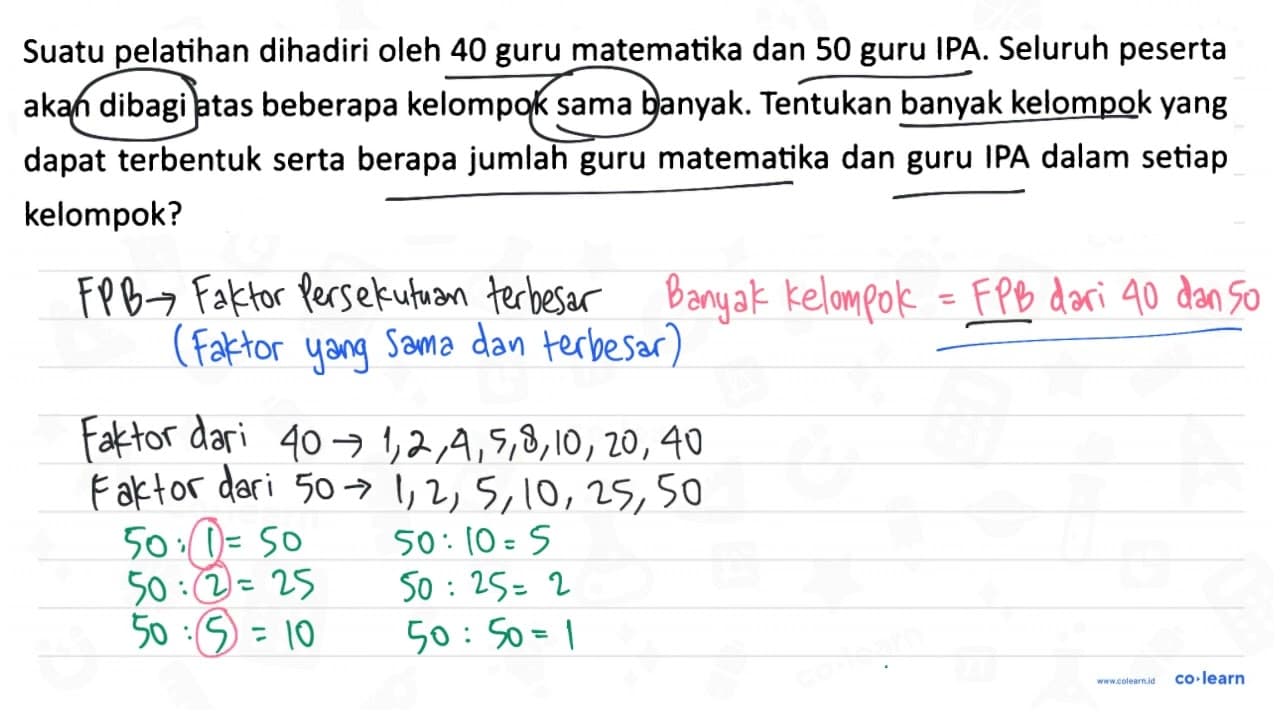 Suatu pelatihan dihadiri oleh 40 guru matematika dan 50 guru IPA. Seluruh peserta
akan dibagi atas beberapa kelompok sama banyak. Tentukan banyak kelompok yang
dapat terbentuk serta berapa jumlah guru matematika dan guru IPA dalam setiap
kelompok?
FPB → Faktor Persekutuan terbesar Banyak kelompok = FPB dari 40 dan 50
(Faktor yang sama dan terbesar)
Faktor dari 40 → 1, 2, 4, 5, 8, 10, 20, 40
Faktor dari 50 → 1, 2, 5, 10, 25, 50
50 : 1 = 50 50 : 10 = 5
50 : 2 = 25 50 : 25 = 2
50 : 5 = 10 50 : 50 = 1
www.colearn.id co·learn